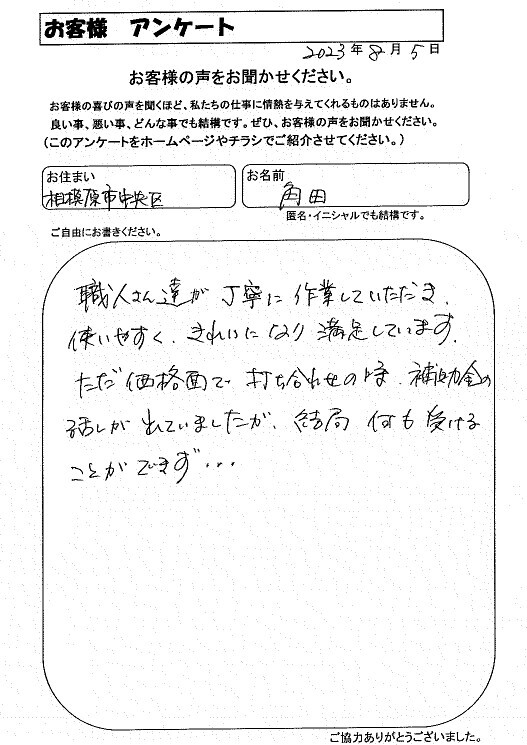 お客様 アンケート
2023年8月5日
お客様の声をお聞かせください。
お客様の喜びの声を聞くほど、私たちの仕事に情熱を与えてくれるものはありません。
良い事、悪い事、どんな事でも結構です。ぜひ、お客様の声をお聞かせください。
(このアンケートをホームページやチラシでご紹介させてください。)
お住まい
相模原市中央区
お名前
角田
匿名・イニシャルでも結構です。
ご自由にお書きください。
職人さん達が丁寧に作業していただき、
使いやすく、きれいになり満足しています。
ただ価格面で打ち合わせの時、補助金の
話しが出ていましたが、結局何も受ける
ことができず…
ご協力ありがとうございました。